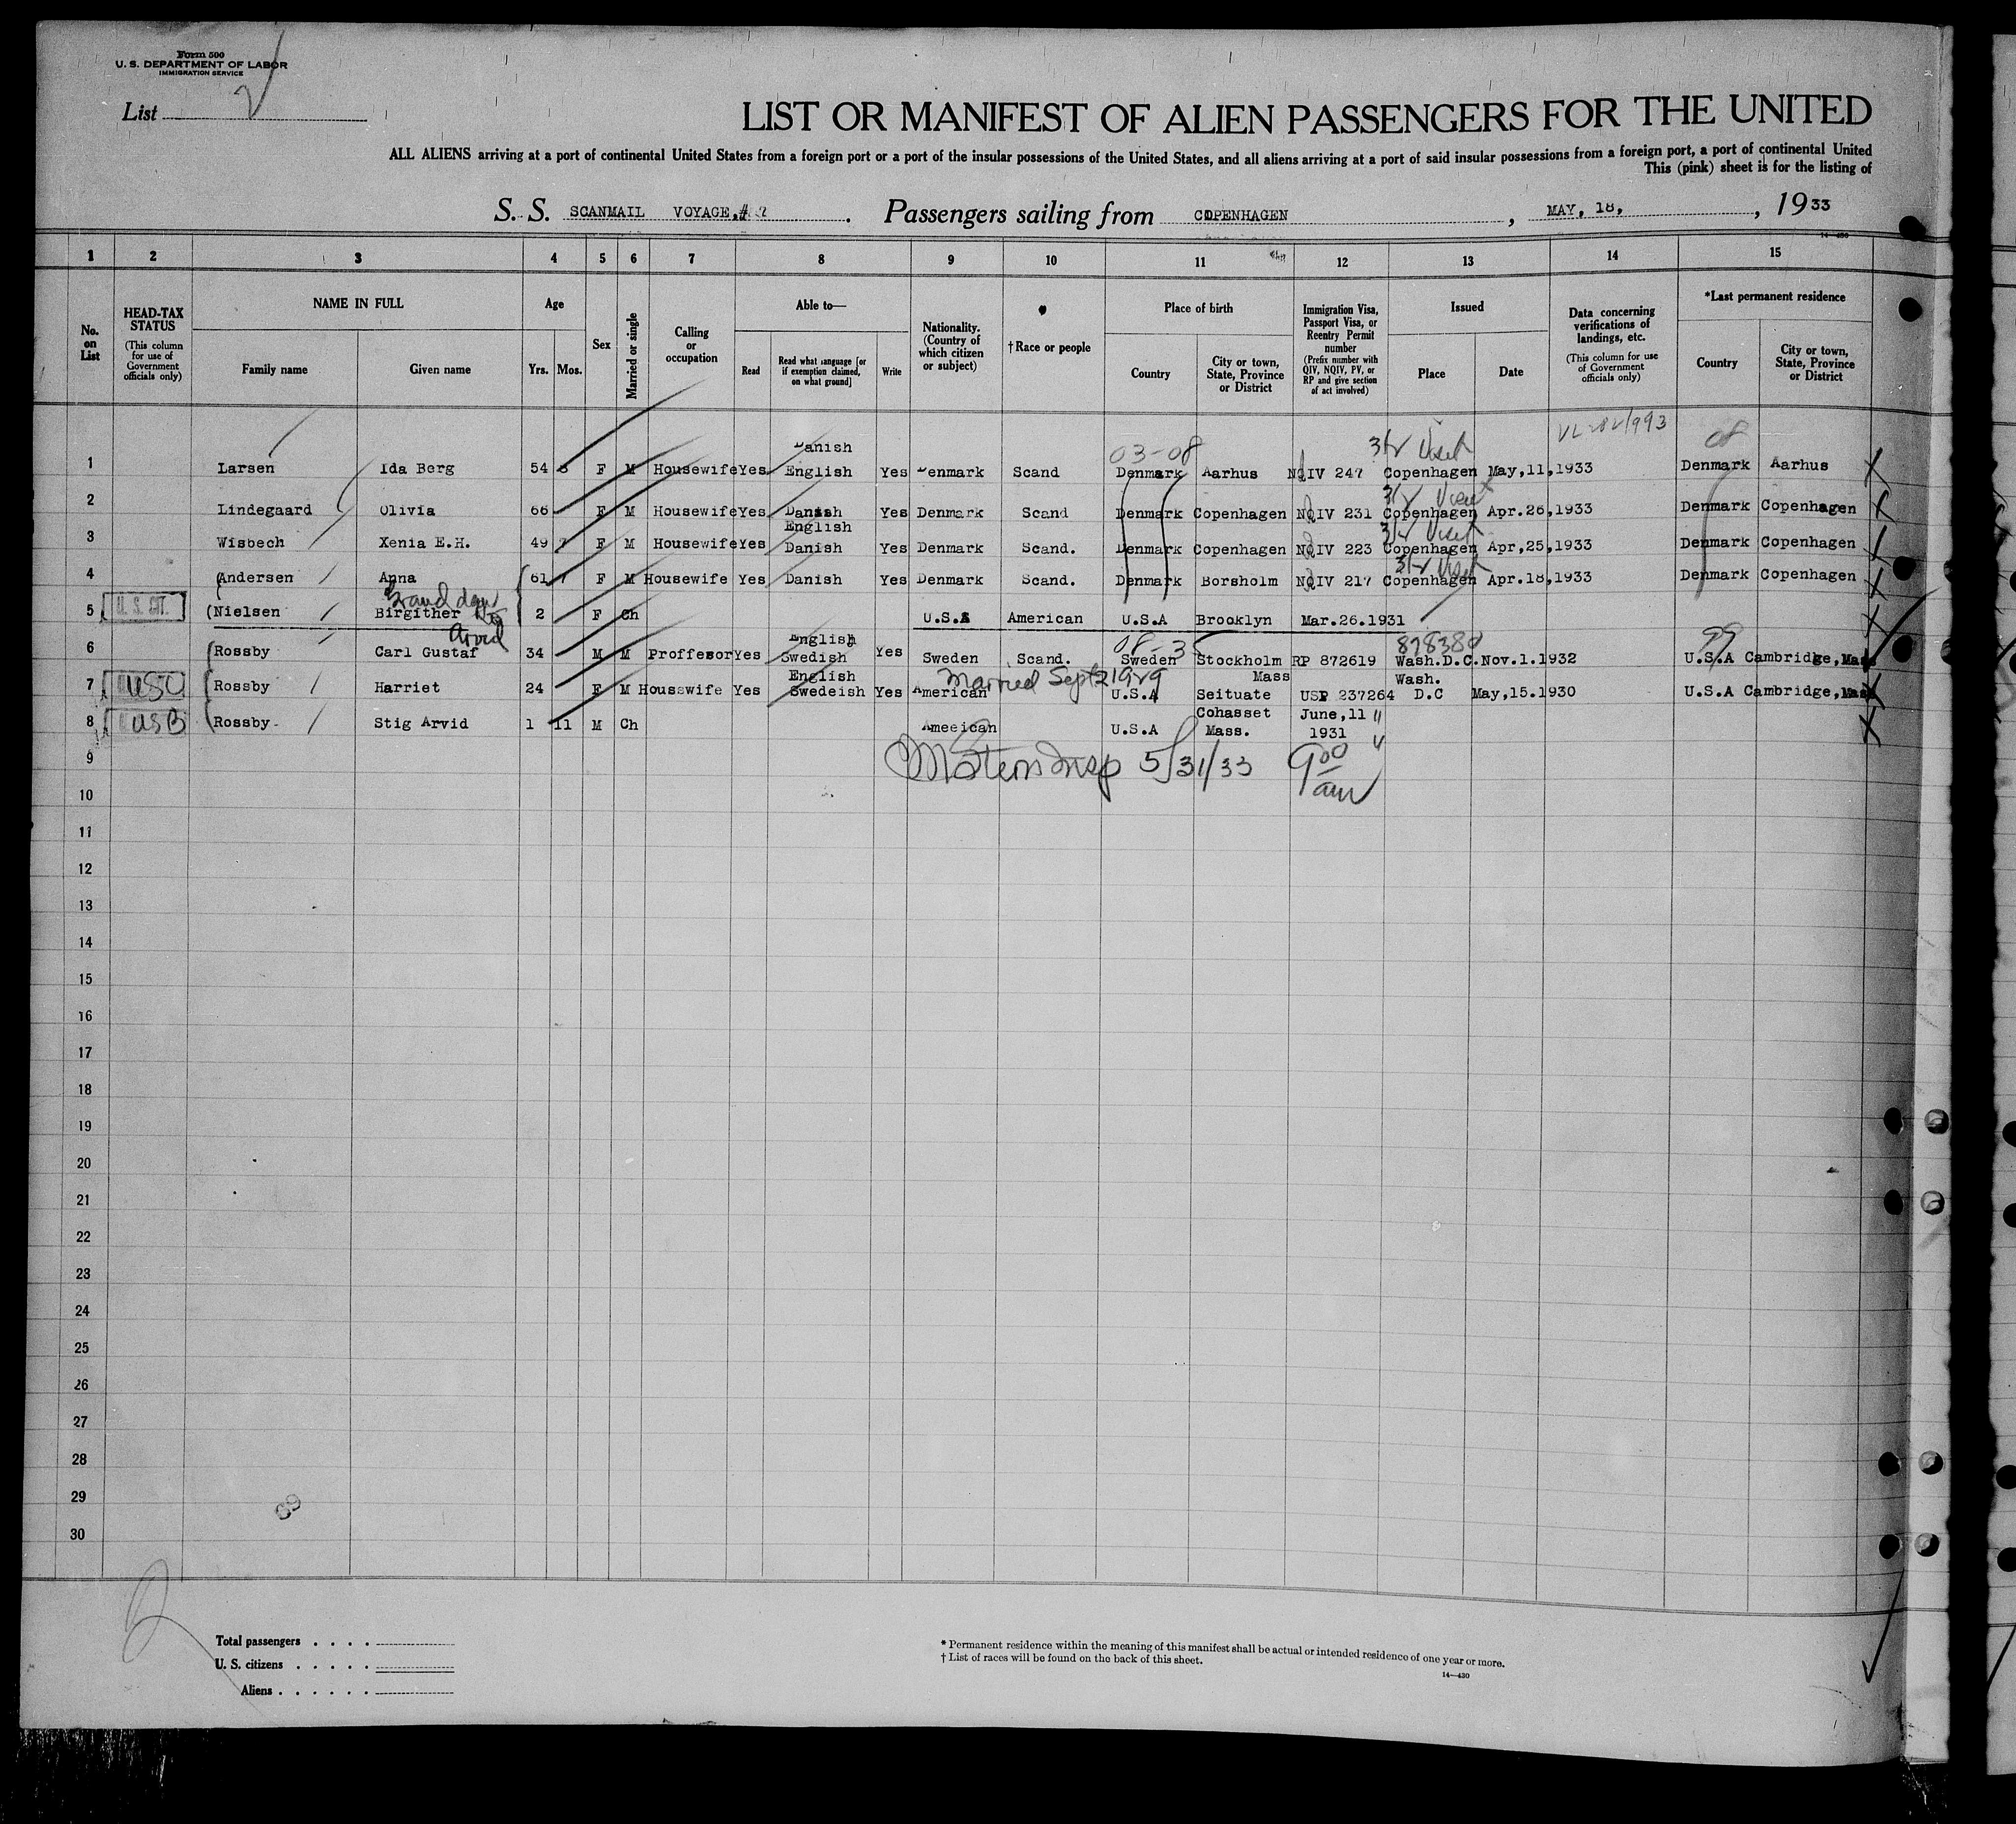 Form 500
U. S. DEPARTMENT OF LABOR
IMMIGRATION SERVICE
List 2
LIST OR MANIFEST OF ALIEN PASSENGERS FOR THE UNITED
ALL ALIENS arriving at a port of continental United States from a foreign port or a port of the insular possessions of the United States, and all aliens arriving at a port of said insular possessions from a foreign port, a port of continental United
This (pink) sheet is for the listing of
S. S. SCANMAIL VOYAGE, # . Passengers sailing from COPENHAGEN , MAY, 18, , 1933
14-430
1 2 3 4 5 6 7 8 9 10 11 12 13 14 15
No. on List
HEAD-TAX STATUS
(This column for use of Government officials only)
NAME IN FULL
Family name Given name
Age
Yrs. Mos.
Sex
Married or single
Calling or occupation
Able to—
Read
Read what language [or if exemption claimed, on what ground]
Write
Nationality. (Country of which citizen or subject)
†Race or people
Place of birth
Country
City or town, State, Province or District
Immigration Visa, Passport Visa, or Reentry Permit number
(Prefix number with QIV, NQIV, PV, or RP and give section of act involved)
Issued
Place Date
Data concerning verifications of landings, etc.
(This column for use of Government officials only)
*Last permanent residence
Country
City or town, State, Province or District
03-08 3(2 Visit 08
1 Larsen Ida Berg 54 8 F M Housewife Yes Danish English Yes Denmark Scand Denmark Aarhus NQIV 247 Copenhagen May,11,1933 Denmark Aarhus
3(2 Visit
2 Lindegaard Olivia 66 F M Housewife Yes Danish Yes Denmark Scand Denmark Copenhagen NQIV 231 Copenhagen Apr.26,1933 Denmark Copenhagen
3(2 Visit
3 Wisbech Xenia E.H. 49 7 F M Housewife Yes English Danish Yes Denmark Scand. Denmark Copenhagen NQIV 223 Copenhagen Apr,25,1933 Denmark Copenhagen
3(2 Visit
4 Andersen Anna 61 7 F M Housewife Yes Danish Yes Denmark Scand. Denmark Borsholm NQIV 217 Copenhagen Apr.18,1933 Denmark Copenhagen
Grand dau
5 U. S. CIT. (Nielsen Birgither 2 F Ch U.S.A American U.S.A Brooklyn Mar.26.1931
Arvid 08-3 878380 99
6 Rossby Carl Gustaf 34 M M Proffesor Yes English Swedish Yes Sweden Scand. Sweden Stockholm RP 872619 Wash.D.C. Nov.1.1932 U.S.A Cambridge, Mass
Married Sept 1929
7 USC Rossby Harriet 24 F M Housewife Yes English Swedeish Yes American U.S.A Mass Seituate USP 237264 Wash. D.C May,15.1930 U.S.A Cambridge, Mass
8 USB Rossby Stig Arvid 1 11 M Ch Ameeican U.S.A Cohasset Mass. June,11 1931 " "
9 Insp 5/31/33 9 00 am
10
11
12
13
14
15
16
17
18
19
20
21
22
23
24
25
26
27
28
29
30
69
2
Total passengers . . . .
U. S. citizens . . . . .
Aliens . . . . . .
* Permanent residence within the meaning of this manifest shall be actual or intended residence of one year or more.
† List of races will be found on the back of this sheet.
14—430